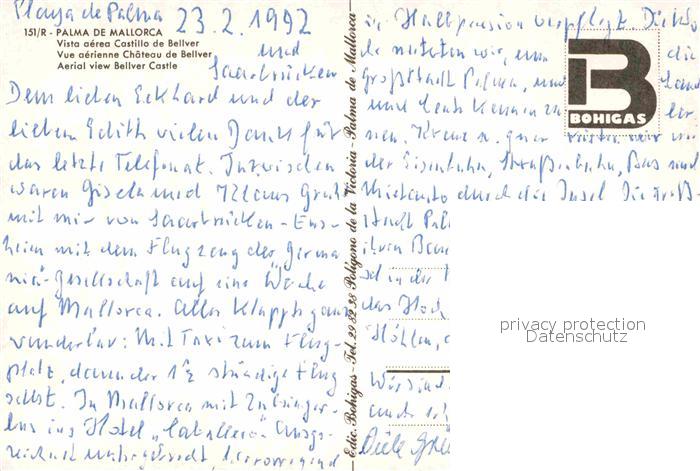 Playa de Palma 23.2.1992
151/R - PALMA DE MALLORCA
Vista aérea Castillo de Bellver
Vue aérienne Château de Bellver
Aerial view Bellver Castle
und
Saarbrücken
Dem lieben Eckhard und der
lieben Edith vielen Dank für
das letzte Telefonat. Inzwischen
waren Gisela und Klaus
mit mir von Saarbrücken-Ens-
heim mit dem Flugzeug der Germa
nia-Gesellschaft auf eine Woche
auf Mallorca. Alles klappte ganz
wunderbar: Mit Taxi zum Flug-
platz, dann der 1½ stündige Flug
selbst. In Mallorca mit Zubringer-
bus ins Hotel „Caballero" ausge-
zeichnet untergebracht, hervorragend
Edic. Bohigas - Tel. 29 82 38 Polígono de la Victoria - Palma de Mallorca
in Halbpension verpflegt.
mieteten wir, um die
Großstadt Palma, und Land
und Leute kennen zu ler
nen. Kreuz u. quer wir
der Eisenbahn, Straßenbahn, Bus und
Mietauto durch die Insel. Die
stadt Pal
ihren
in der
das Hoch
Höhlen,
Wir sind
B
BOHIGAS
privacy protection
Datenschutz